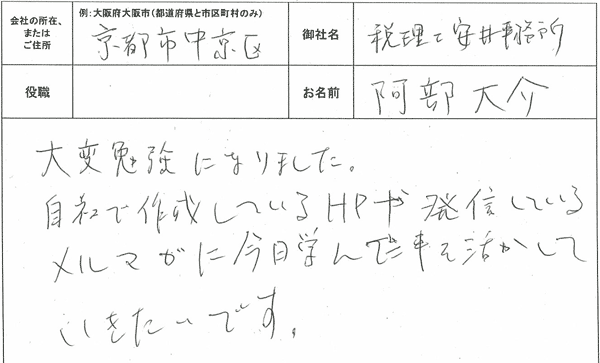 会社の所在、
または
ご住所
例:大阪府大阪市(都道府県と市区町村のみ)
京都市中京区
御社名
税理士安井事務所
役職
お名前
阿部大介
大変勉強になりました。
自社で作成しているHPや発信している
メルマガに今日学んで事を活かして
いきたいです。